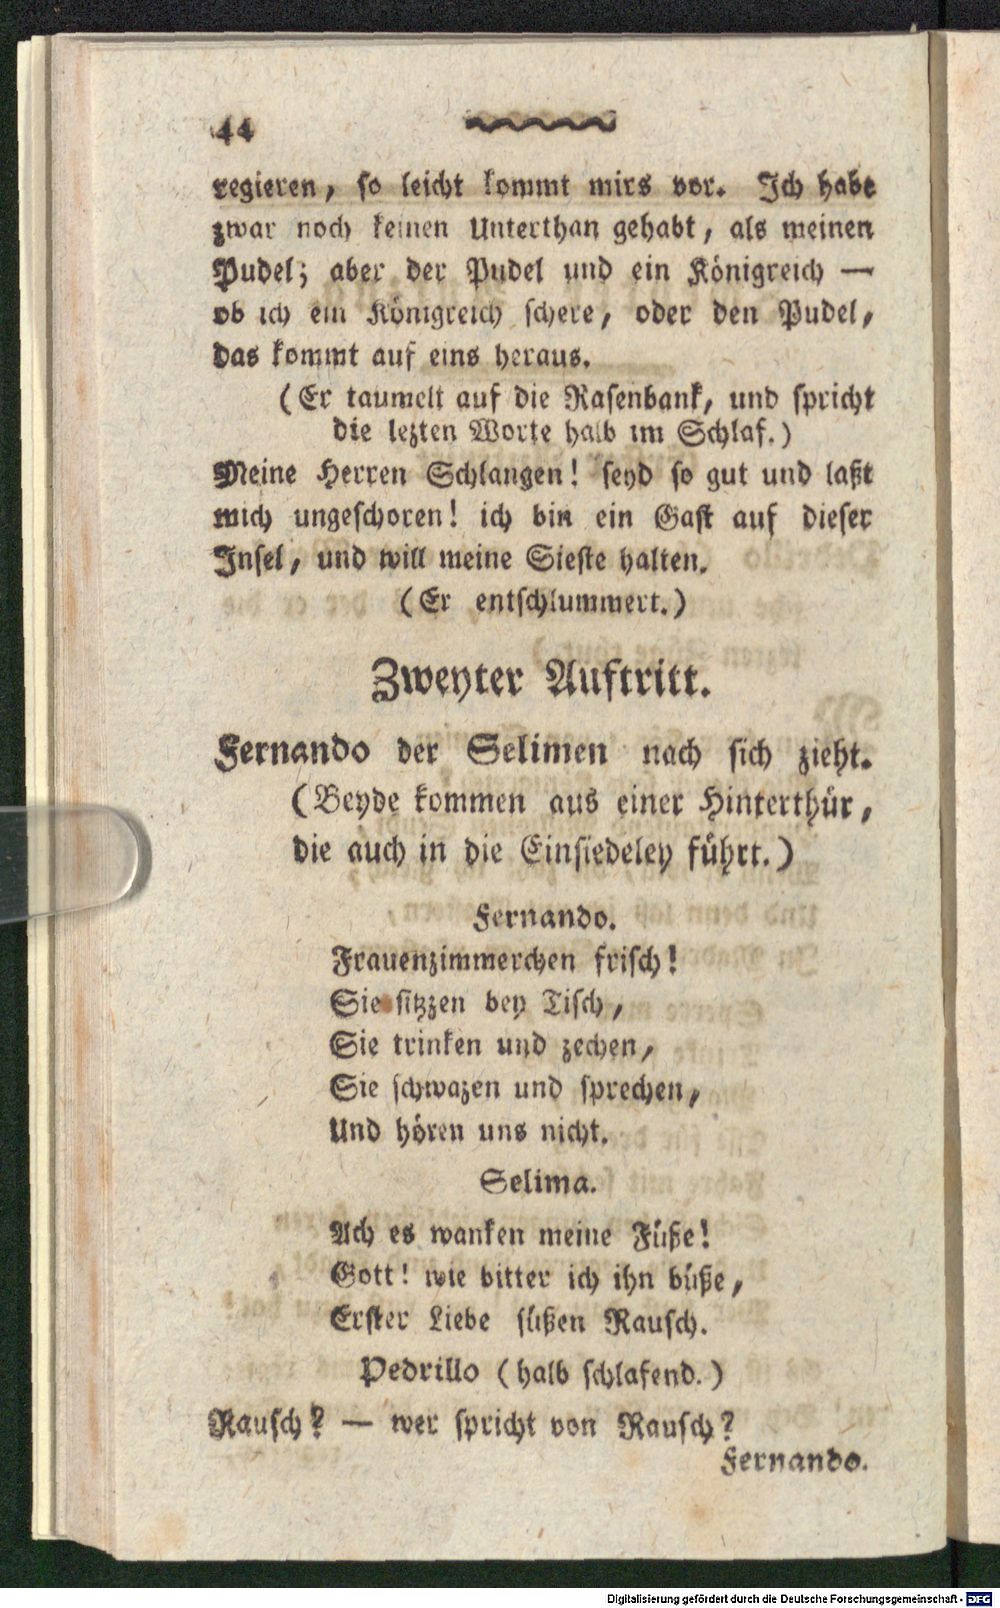 44
regieren, so leicht kommt mirs vor. Ich habe
zwar noch keinen Unterthan gehabt, als meinen
Pudel; aber der Pudel und ein Königreich —
ob ich ein Königreich schere, oder den Pudel,
das kommt auf eins heraus.
(Er taumelt auf die Rasenbank, und spricht
die lezten Worte halb im Schlaf.)
Meine Herren Schlangen! seyd so gut und laßt
mich ungeschoren! ich bin ein Gast auf dieser
Insel, und will meine Sieste halten.
(Er entschlummert.)
Zweyter Auftritt.
Fernando der Selimen nach sich zieht.
(Beyde kommen aus einer Hinterthür,
die auch in die Einsiedeley führt.)
Fernando.
Frauenzimmerchen frisch!
Sie sitzzen bey Tisch,
Sie trinken und zechen,
Sie schwazen und sprechen,
Und hören uns nicht.
Selima.
Ach es wanken meine Füße!
Gott! wie bitter ich ihn büße,
Erster Liebe süßen Rausch.
Pedrillo (halb schlafend.)
Rausch? — wer spricht von Rausch?
Fernando.
Digitalisierung gefördert durch die Deutsche Forschungsgemeinschaft - DFG